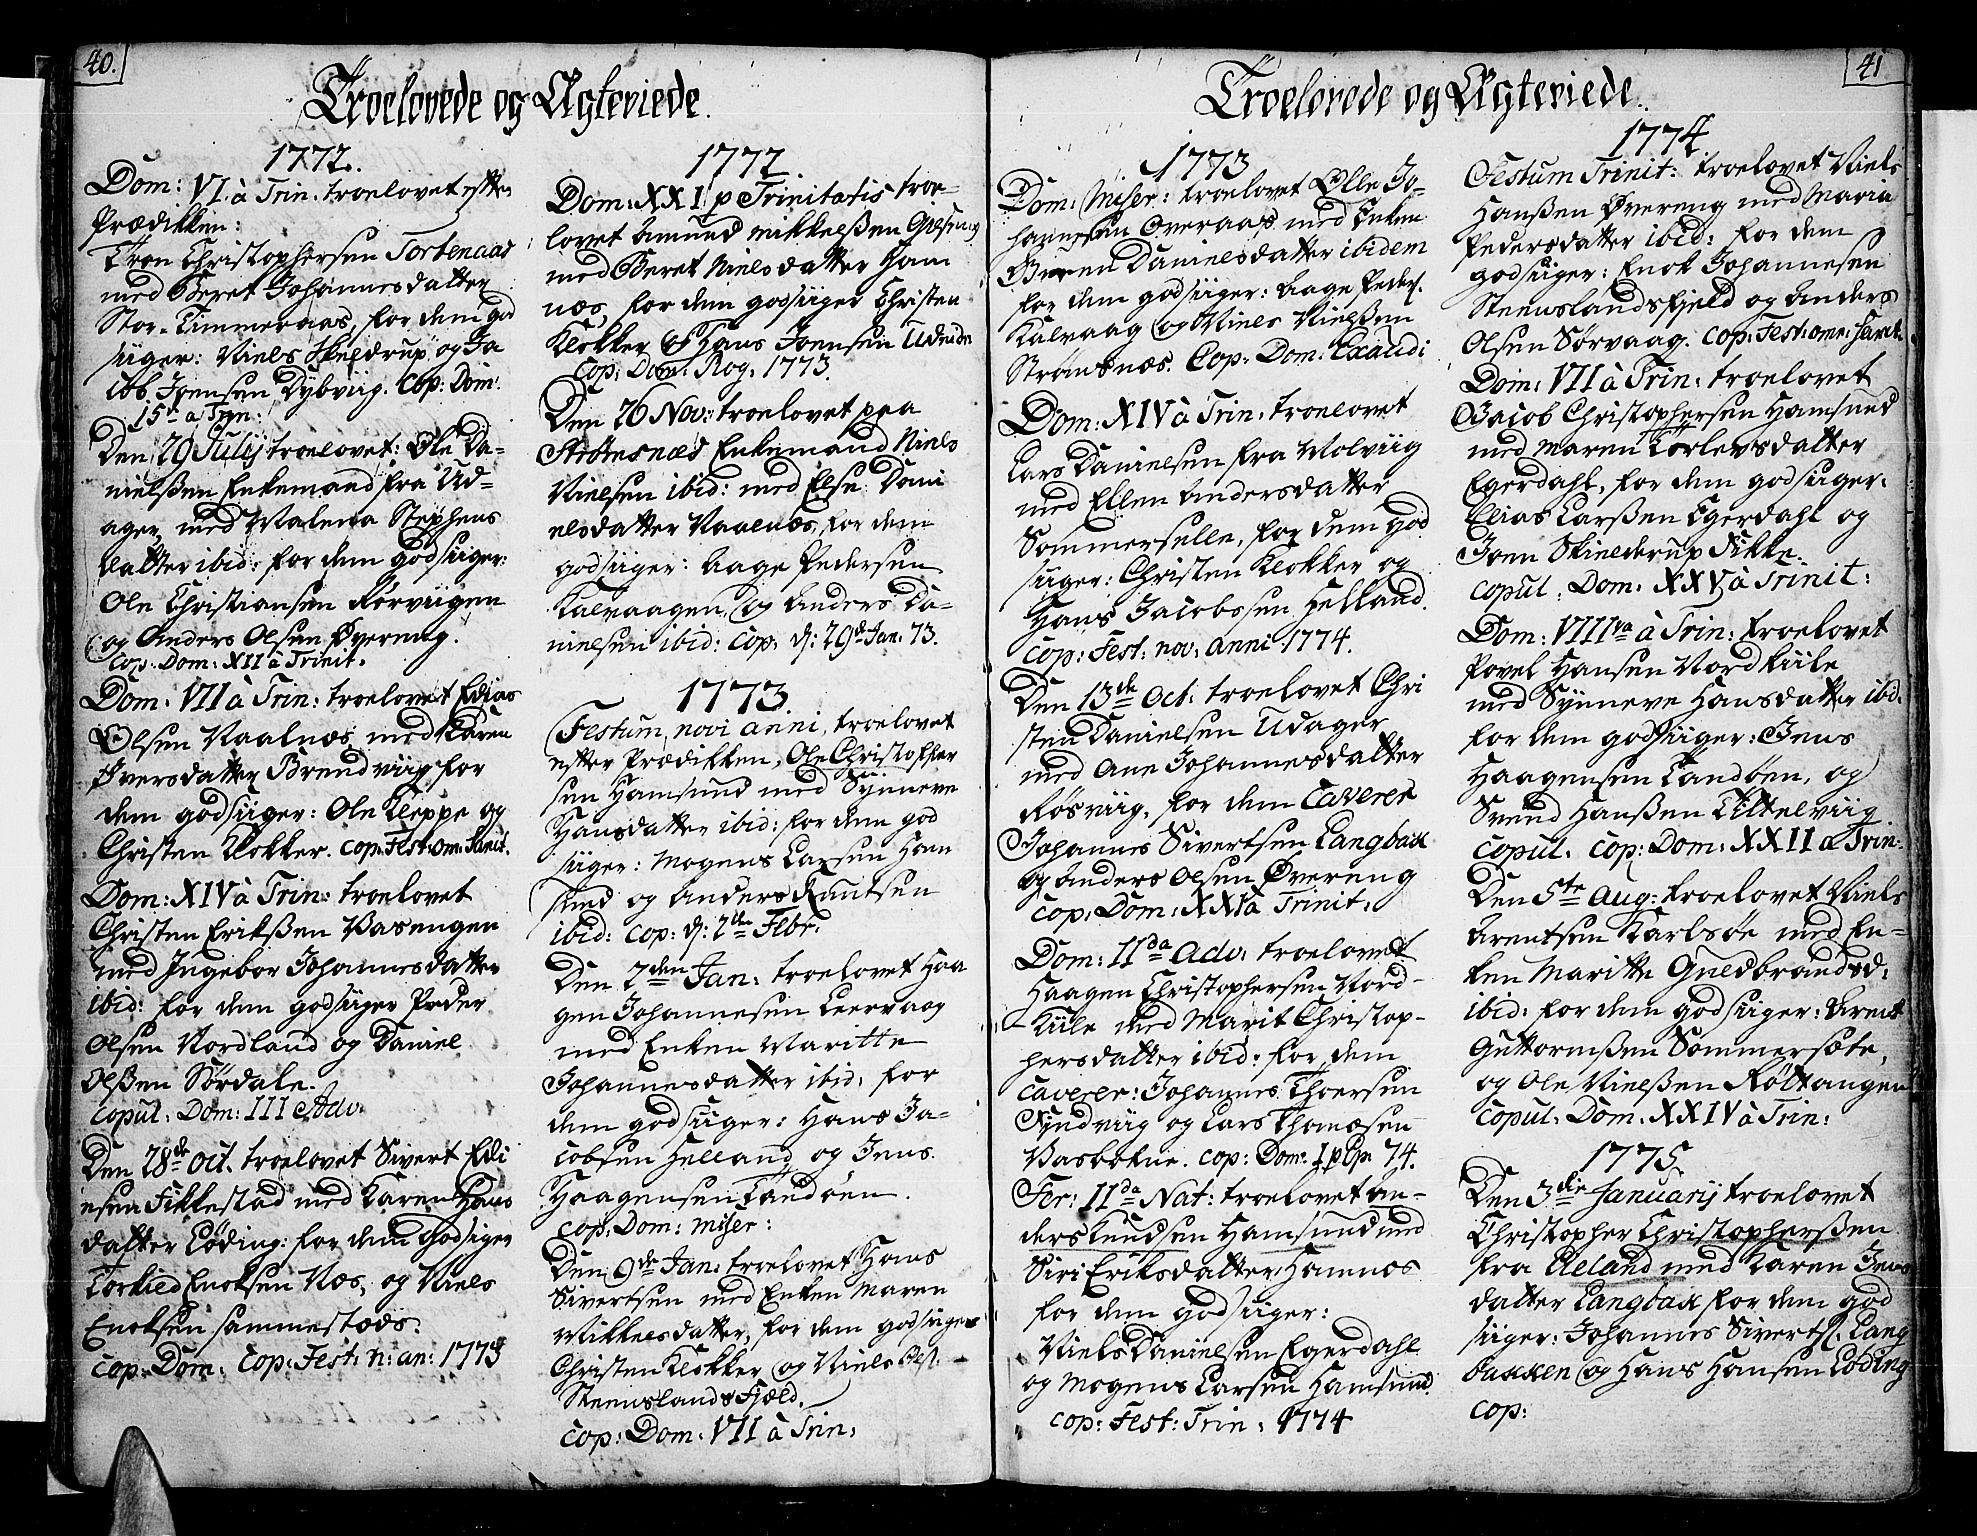 40.
Troelovede og Ægteviede.
1772.
Dom: VI. à Trin: troelovet efter
Prædikken:
Tron Christophersen Torbenaas
med Beret Johannesdatter
Stor-Timmeraas, for dem god
siiger: Niels Skeldrup og Ja
cob Joensen Dybviig. Cop: Dom:
15de a Trin:
Den 29 Julij troelovet: Ole Da=
nielßen Enkemand fra Ud=
ager, med Malena Stephens
datter ibid: for dem god siiger:
Ole Christiansen Rørviigen
og Anders Olsen Øvereng.
Cop: Dom: XII à Trinit.
Dom: VII à Trin: troelovet Edias
Olsen Vaalnæs med Karen
Iversdatter Brendviig for
dem god siiger: Ole Kleppe og
Christen Klokker. Cop: Fest: om: Sanct.
Dom: XIV à Trin: troelovet
Christen Erikßen Vasengen
med Ingebor Johannesdatter
ibid: for dem god siiger Peder
Olsen Nordland og Daniel
Olßen Sørdale.
Copul: Dom: III Adv:
Den 28de Oct. troelovet Sivert Edi
esen Fikkestad med Karen Hans
datter Løding: for dem God siiger
Torkied Enoksen Næs, og Niels
Enoksen sammestæds.
Cop: Dom: Cop: Fest: n: an: 1773
1772.
Dom: XXI p Trinitatis troe=
lovet Amund Mikkelßen Gåseng
med Beret Nielsdatter Ham
næs, for dem god siiger Christen
Klokker & Hans Joensen Udeide
Cop: Dom: Rog: 1773.
Den 26 Nov: troelovet paa
Strømsnæs Enkemand Niels
Nielsen ibid: med Else Dani
elsdatter Vaalnæs, for dem
god siiger: Aage Pedersen
Kalvaagen, og Anders Da=
nielsen ibid: Cop: d: 29de Jan: 73.
1773.
Festum novi anni, troelovet
efter Prædikken, Ole Christopher
sen Hamsund med Synneve
Hansdatter ibid: for dem god
siiger: Mogens Larsen Ham
sund og Anders Knutsen
ibid: Cop: d: 2den Febr:
Den 7den Jan: troelovet Haa
gen Johannesen Leervaag
med Enken Maritte
Johannesdatter ibid: for
dem god siiger: Hans Ja=
cobsen Helland og Jens
Haagensen Tandøen.
Cop: Dom: Miser:
Den 9de Jan: troelovet Hans
Sivertsen med Enken Maren
Mikkelsdatter, for dem god siiger
Christen Klokker og Niels Pes:
Steenslands Fjæld.
Cop: Dom: VII à Trin:
41
Troelovede og Ægteviede.
1773
Dom: Miser: troelovet Olle Jo=
hannesen Overaas med Enken
Maren Danielsdatter ibidem
for dem god siiger: Aage Peders.
Kalvaag og Niels Nielßen
Strømsnæs. Cop: Dom: Exaudi
Dom: XIV à Trin: troelovet
Lars Danielsen fra Molviig
med Ellen Andersdatter
Sommerselle, for dem god
siiger: Christen Klokker og
Hans Jacobssen Helland.
Cop: Fest: nov: anni 1774.
Den 13de Oct: troelovet Chri
sten Danielsen Udager
med Ane Johannesdatter
Røsviig, for dem Caverer
Johannes Sivertsen Langbak
og Anders Olsen Øvereng
Cop: Dom: XX à Trinit:
Dom: IIda Adv: troelovet
Haagen Christophersen Nord-
Kiile med Marit Christop-
hersdatter ibid: for dem
Caverer: Johannes Thoersen
Syndviig og Lars Thomæsen
Vasbotne. Cop: Dom: I p Ep: 74.
Fer: IIda Nat: troelovet An-
ders Knudsen Hamsund med
Siri Eriksdatter Hamnæs
for dem god siiger:
Niels Danielsen Egerdahl
og Mogens Larsen Hamsund
Cop: Fest: Trin: 1774
1774
Festum Trinit: troelovet Niels
Hanßen Øvereng med Maria
Pedersdatter ibid: for dem
god siiger: Enok Johannesen
Steenslandsfjeld og Anders
Olsen Sørvaag. Cop: Fest: omn: Sanct.
Dom: VII à Trin: troelovet
Jacob Christophersen Hamsund
med Maren Torlevsdatter
Egerdahl, for dem god siiger:
Elias Larßen Egerdahl og
Joen Skielderup Fikke.
Copul: Dom: XXV à Trinit:
Dom: VIIIva à Trin: troelovet
Povel Hansen Nordkiile
med Synneve Hansdatter ibid.
for dem god siiger: Jens
Haagensen Tandøen, og
Svend Hanßen Tittelviig
Copul. Cop: Dom: XXII a Trin.
Den 5te Aug: troelovet Niels
Arentsen Karlsøe med En=
ken Maritte Guldbrandsd:
ibid: for dem god siiger: Arent
Guttormßen Sommersæte,
og Ole Nielßen Røttangen
Copul: Dom: XXIV à Trin:
1775
Den 3die Januarij troelovet
Christopher Christopherßen
fra Eeland med Karen Jens
datter Langbak for dem god
siiger: Johannes Sivertß. Lang
bakken og Hans Hansen Løding
Cop: